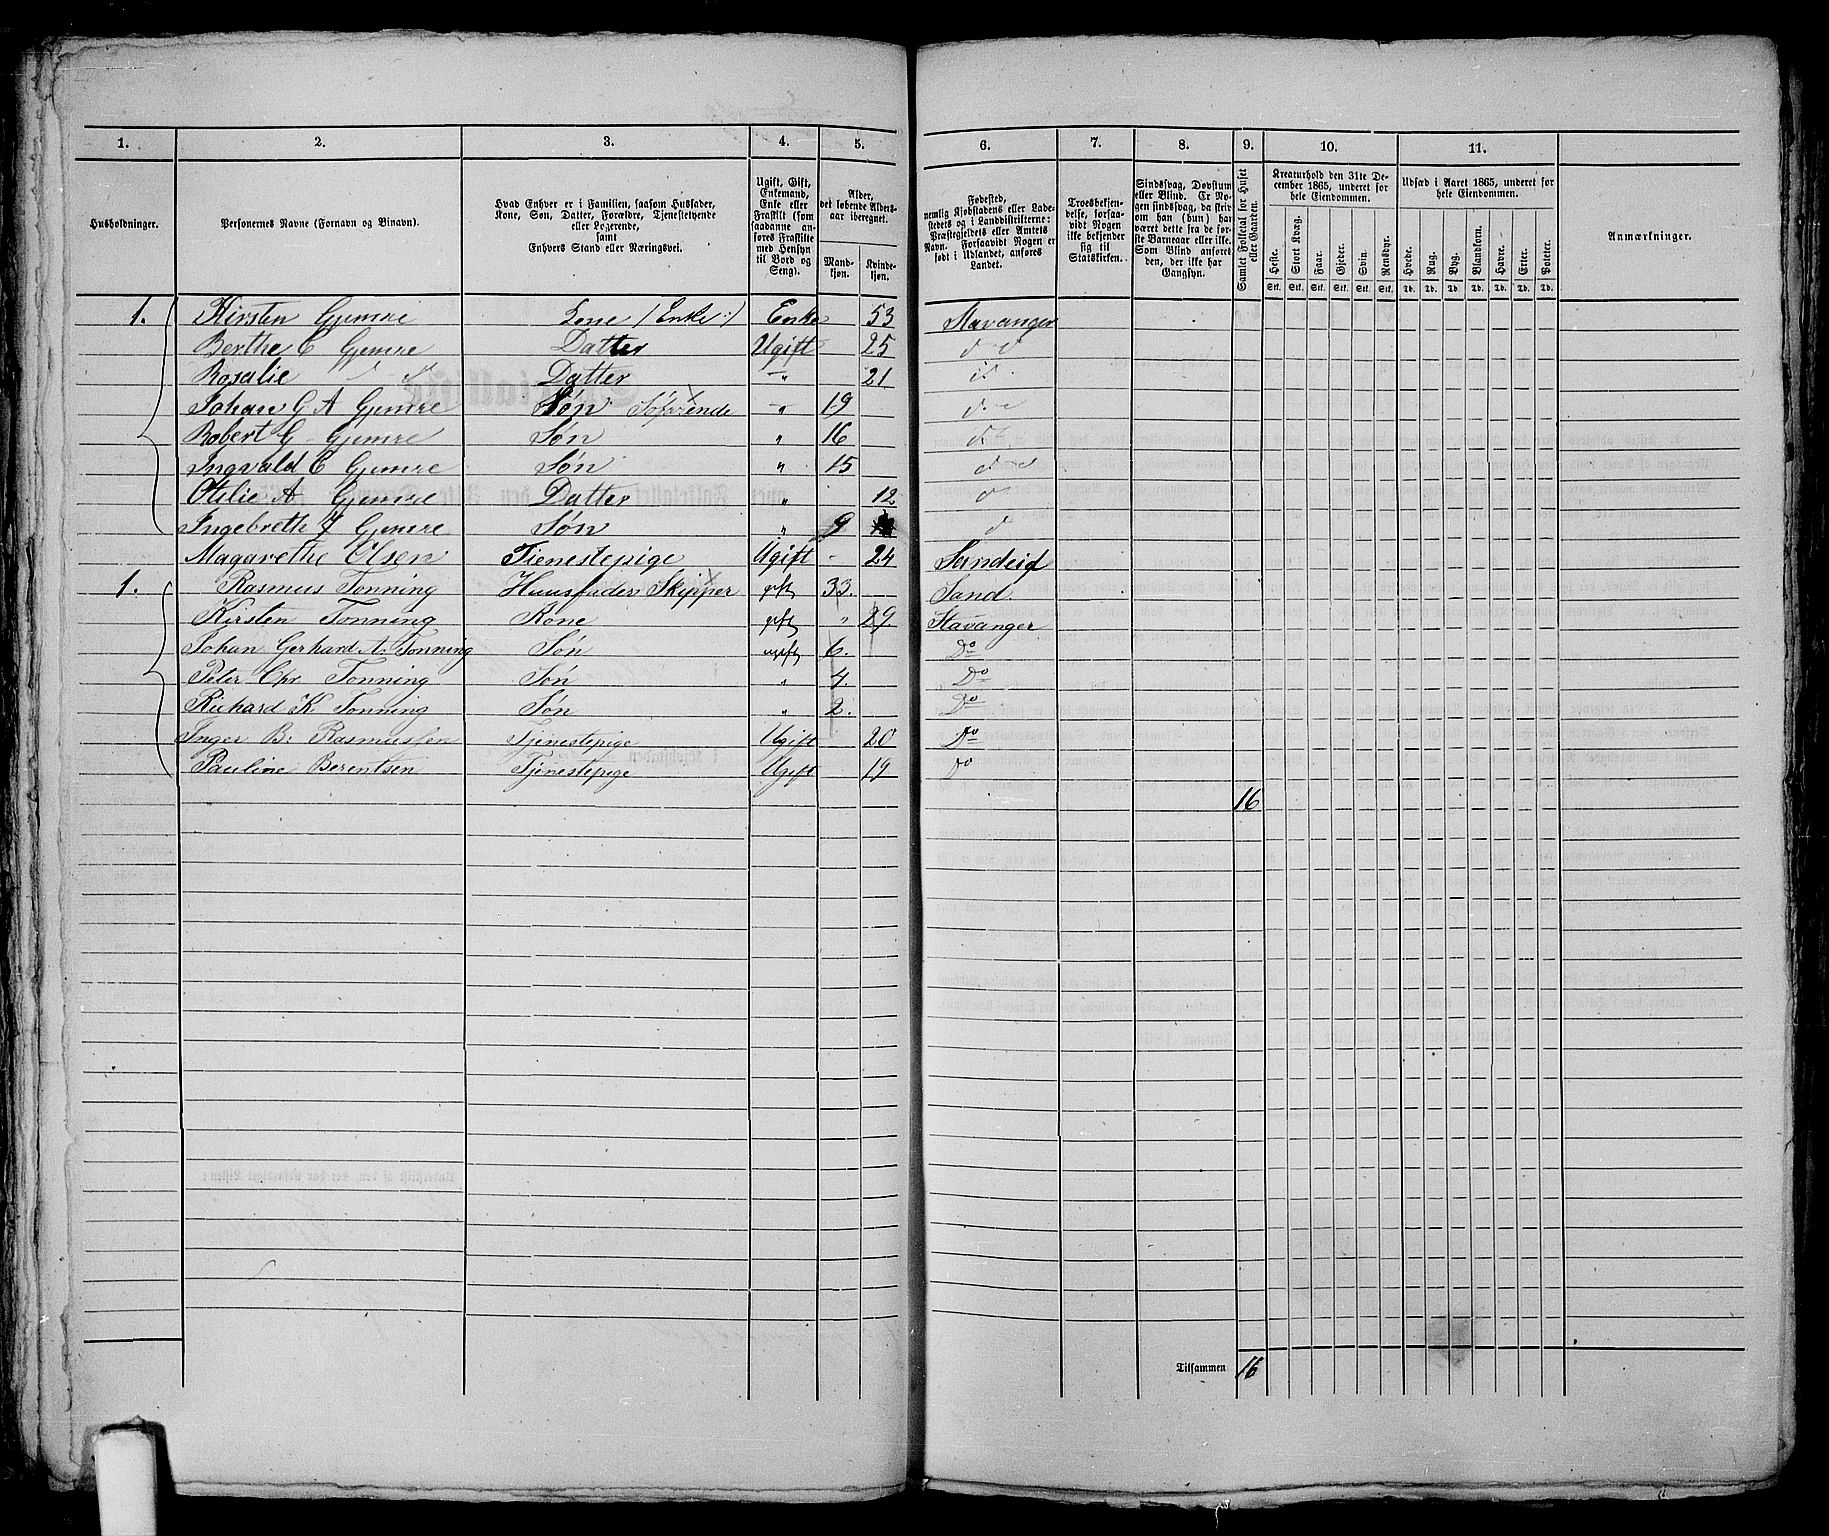 1. 2. 3. 4. 5. 6. 7. 8. 9. 10. 11.
Husholdninger.
Personernes Navne (Fornavn og Binavn).
Hvad Enhver er i Familien, saasom Husfader,
Kone, Søn, Datter, Forældre, Tjenestetyende
eller Logerende,
samt
Enhvers Stand eller Næringsvei.
Ugift, Gift,
Enkemand,
Enke eller
Fraskilt (som
saadanne an-
føres Fraskilte
med Hensyn
til Bord og
Seng).
Alder,
det løbende Alders-
aar iberegnet.
Mand-
kjøn.
Kvinde-
kjøn.
Fødested,
nemlig Kjøbstadens eller La-
destedets og i Landdistrikterne:
Præstegjeldets eller Amtets
Navn. Forsaavidt Nogen er
født i Udlandet, anføres
Landet.
Troesbekjen-
delse, forsaa-
vidt Nogen
ikke bekjender
sig til
Statskirken.
Sindssvag, Døvstum
eller Blind. Er No-
gen sindssvag, da skriv
om han (hun) har
været dette fra de før-
ste Barneaar eller ikke.
Som Blind anføres
den, der ikke har
Gangsyn.
Samlet Folketal for Huset
eller Gaarden.
Kreaturhold den 31te De-
cember 1865, underet for
hele Eiendommen.
Heste. Stort Kvæg. Faar. Gjeder. Svin. Rensdyr.
Stk. Stk. Stk. Stk. Stk. Stk.
Udsæd i Aaret 1865, underet for
hele Eiendommen.
Hvede. Rug. Byg. Blandkorn. Havre. Erter. Poteter.
Td. Td. Td. Td. Td. Td. Td.
Anmærkninger.
1. Kirsten Gjemre Enke 53 Stavanger
Berthe C Gjemre Datter Ugift 25 do
Rosalie do Datter " 21 do
Johan G A Gjemre Søn Søfarende " 19 do
Robert G Gjemre Søn " 16 do
Ingvald C Gjemre Søn " 15 do
Otelie A Gjemre Datter " 12 do
Ingebreth J Gjemre Søn " 9 do
Magarethe Olsen Tienestepige Ugift - 24 Sandeid
1. Rasmus Tonning Huusfader Skipper gift 33. Sand
Kirsten Tonning Kone gift " 29. Stavanger
Johan Gerhard A. Tonning Søn ugift 6. Do
Peter Chr Tonning Søn " 4. Do
Richard K Tonning Søn " 2. Do
Inger B. Rasmussen Tjenestepige Ugift 20 Do
Pauline Berentsen Tjenestepige Ugift 19 Do
16
Tilsammen 16